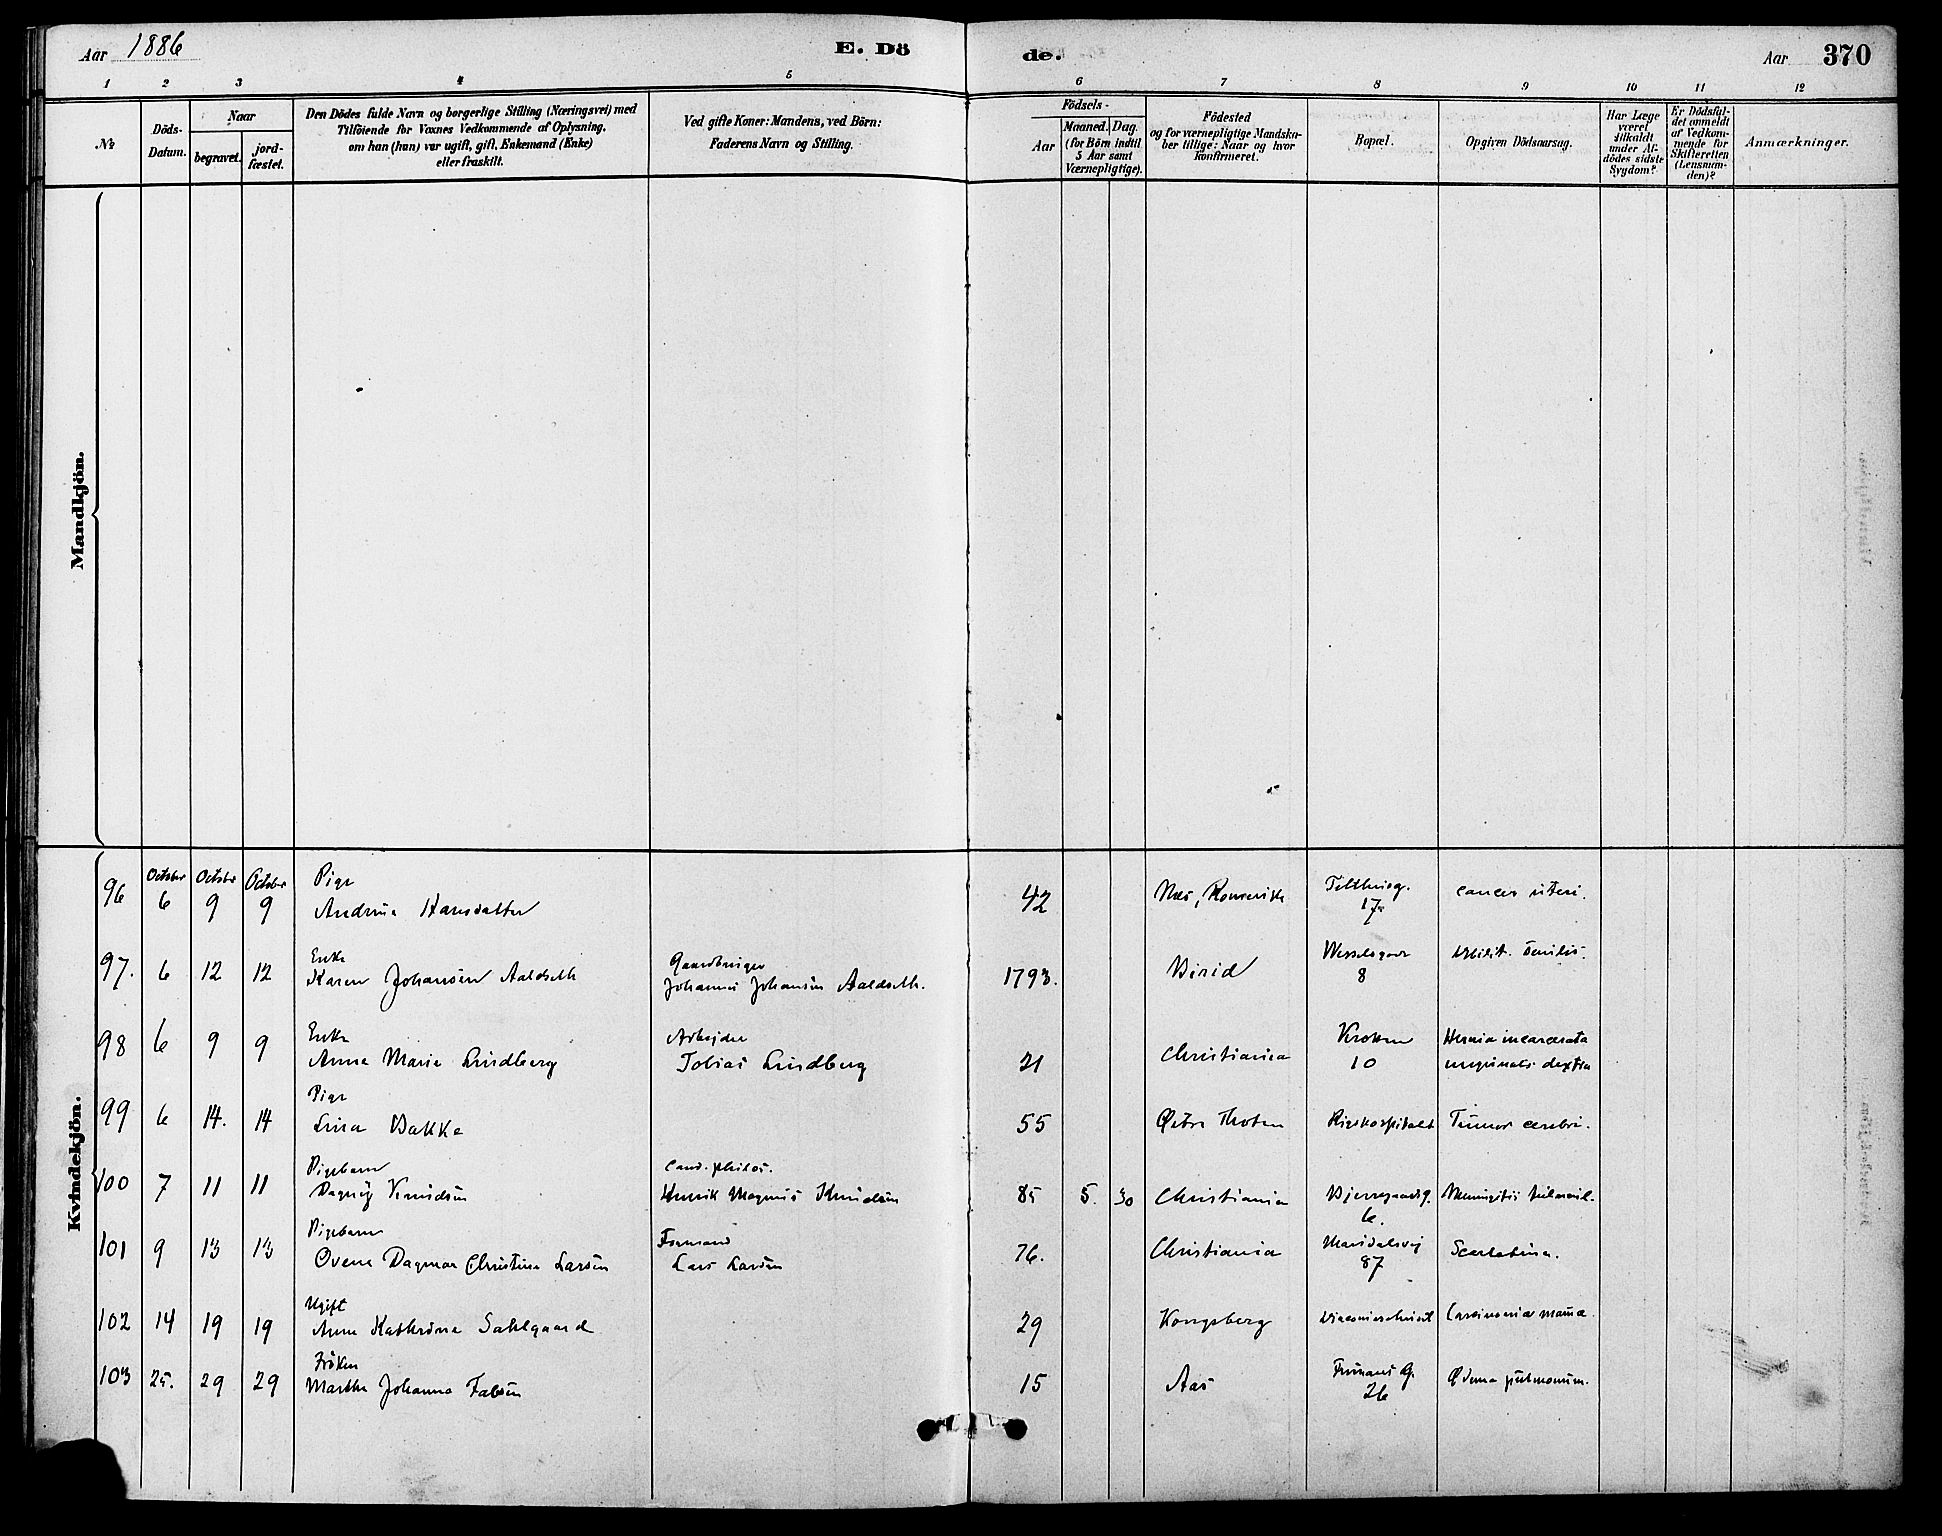 Aar 1886
E. Dö
de.
Aar
370
1 2 3 4 5 6 7 8 9 10 11 12
№
Döds-
Datum.
Naar
begravet.
jord-
fæstet.
Den Dödes fulde Navn og borgerlige Stilling (Næringsvei) med
Tilföiende for Voxnes Vedkommende af Oplysning,
om han (hun) var ugift, gift, Enkemand (Enke)
eller fraskilt.
Ved gifte Koner: Mandens, ved Börn:
Faderens Navn og Stilling.
Födsels-
Aar
Maaned.
Dag.
(for Börn indtil
5 Aar samt
Værnepligtige).
Födested
og for værnepligtige Mandska-
ber tillige: Naar og hvor
konfirmeret.
Bopæl.
Opgiven Dödsaarsag.
Har Læge
været
tilkaldt
under Af-
dödes sidste
Sygdom?
Er Dödsfal-
det anmeldt
af Vedkom-
mende for
Skifteretten
(Lensman-
den)?
Anmærkninger.
Mandkjön.
Kvindekjön.
October October October Pige
96 6 9 9 Andrine Hansdatter 42 Næs, Romerike 17 cancer uteri.
Enke Gaardbruger
97. 6 12 12 Karen Johansen Aaldseth Johannes Johansen Aaldseth. 1793. Birid 8 senilis.
Enke Arbejder
98 6 9 9 Anne Marie Lindberg Tobias Lindberg 21 Christiania Kroken 10 Hernia incarcerata
inguinalis dextra
Pige
99 6 14. 14 Lina Bakke 55 Østre Thoten Rigshospitalet Tumor cerebri.
Pigebarn Cand. philos.
100 7 11 11 Dagny Knudsen Henrik Magnus Knudsen 85 5. 30 Christiania Bjerregaardsg. 6. Meningitis
Pigebarn Formand
101 9 13 13 Ovene Dagmar Christine Larsen Lars Larsen 76. Christiania Maridalsvej 87 Scarlatina.
Ugift
102 14 19 19 Anne Kathrine Sahlgaard 29 Kongsberg Carcinoma mamæ.
Fröken
103 25. 29 29 Marthe Johanna Falsen 15 Aas 26 Ødema pulmonum.